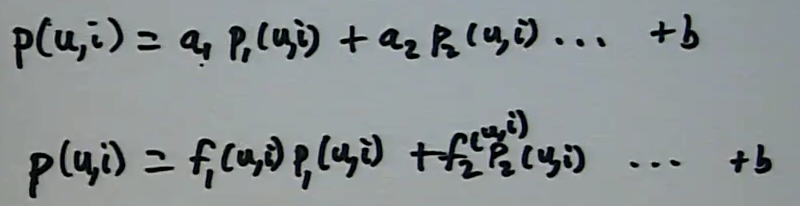 p(u,i) = a₁ p₁(u,i) + a₂ p₂(u,i) ... + b
p(u,i) = f₁(u,i) p₁(u,i) + f₂(u,i) p₂(u,i) ... + b